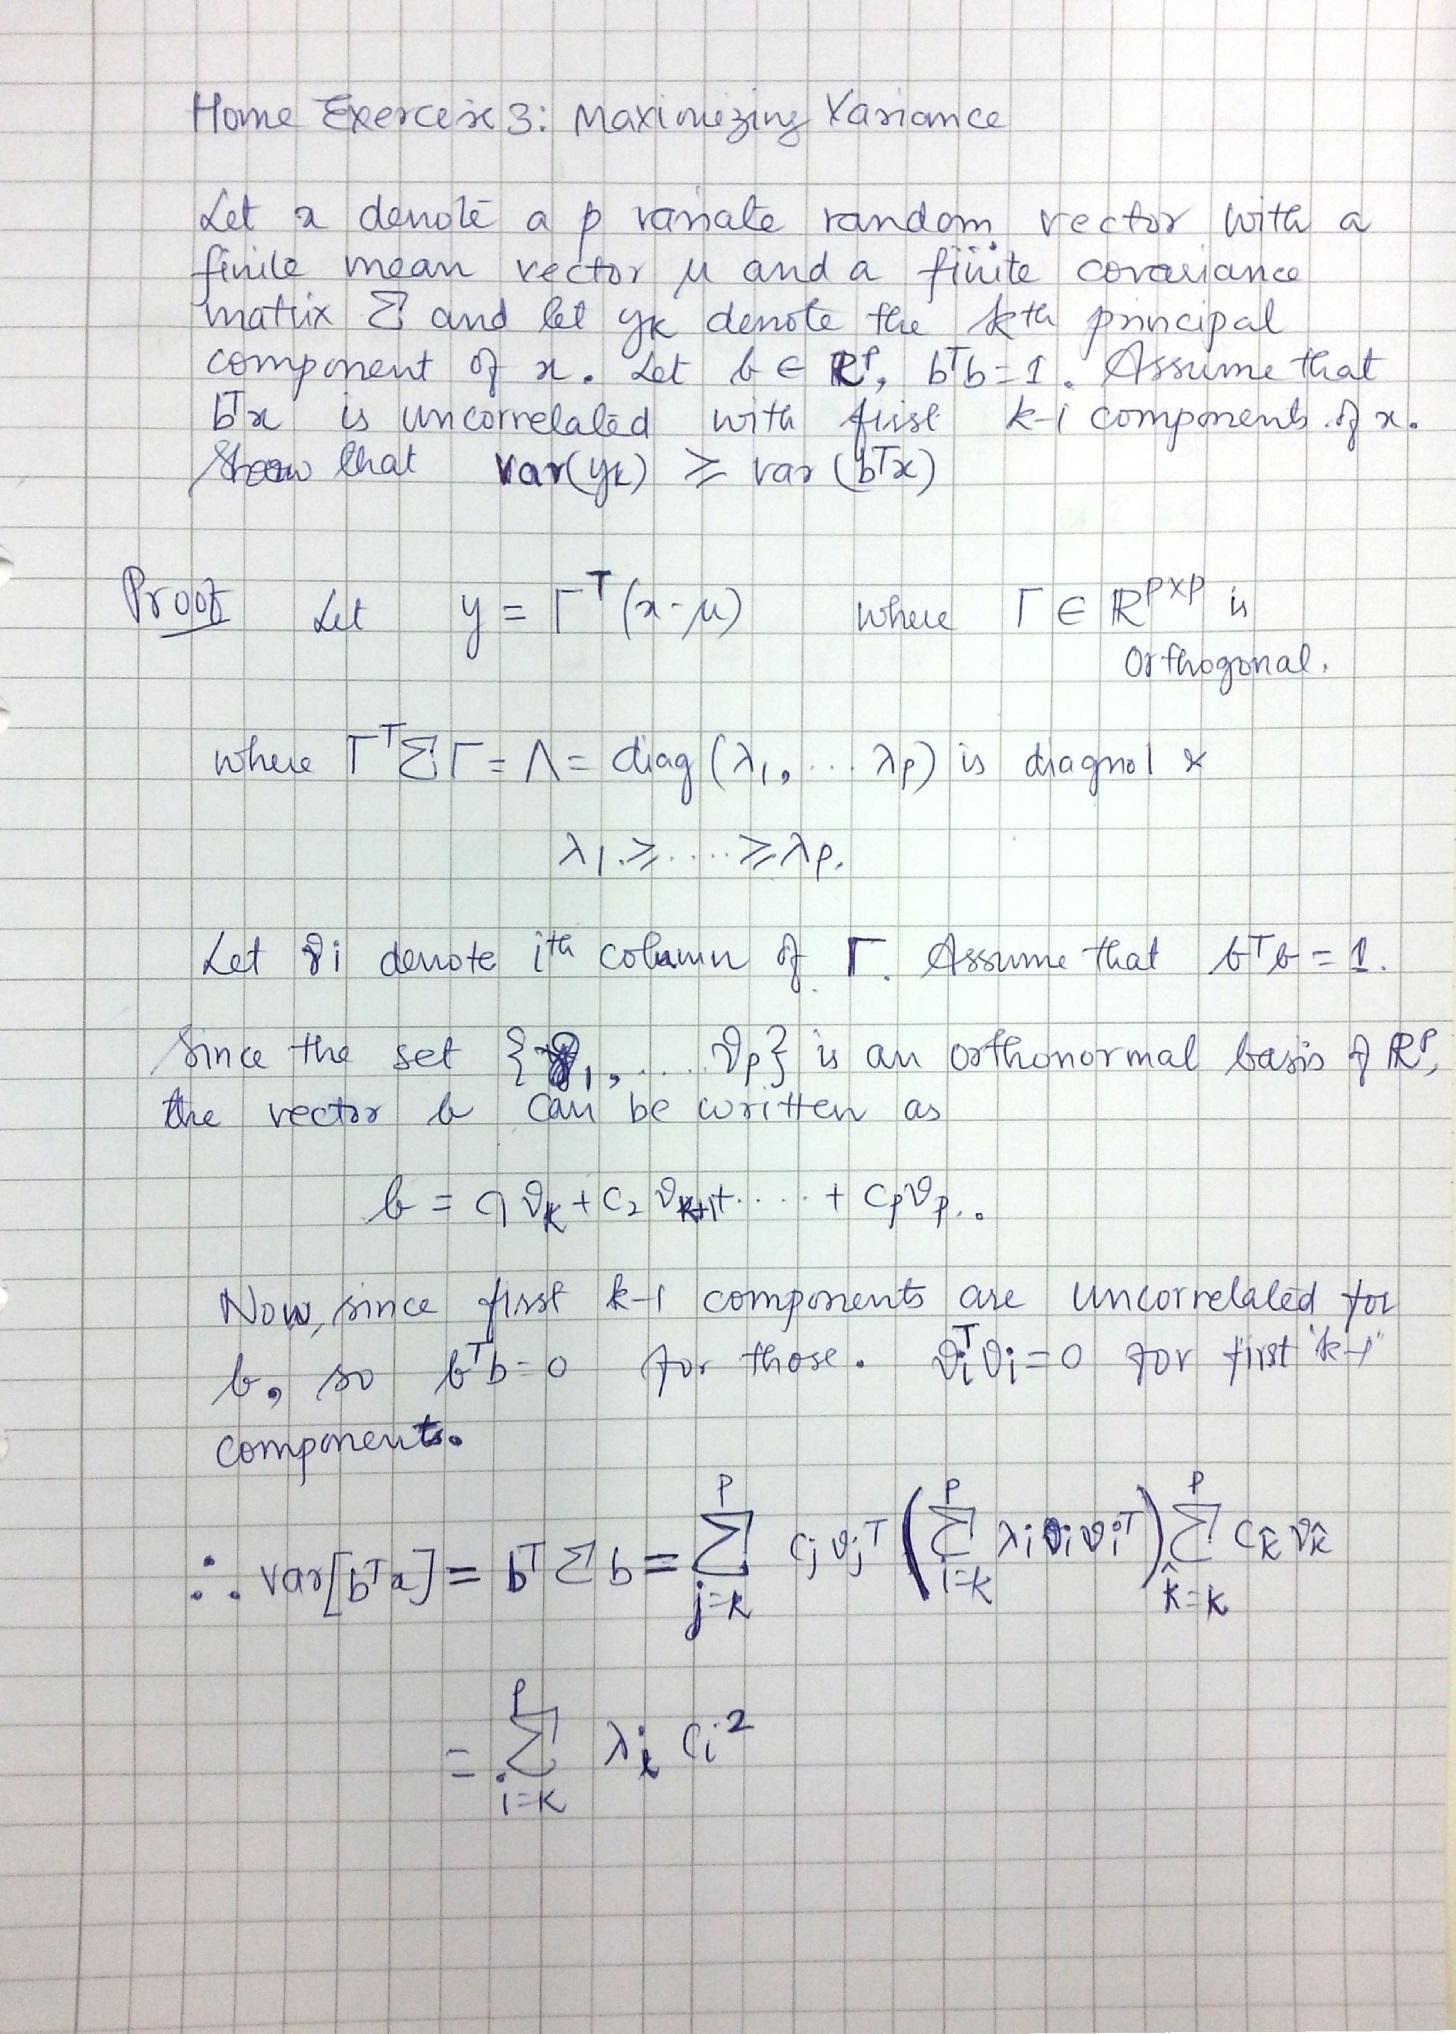 Home Exercise 3: Maximizing Variance
Let x denote a p variate random vector with a
finite mean vector μ and a finite covariance
matrix Σ and let yk denote the kth principal
component of x. Let b ∈ ℝᵖ, bᵀb=1. Assume that
bᵀx is uncorrelated with first k-1 components of x.
Show that var(yk) ≥ var(bᵀx)
Proof Let y = Γᵀ(x-μ) where Γ ∈ ℝᵖˣᵖ is
Orthogonal.
where ΓᵀΣΓ = Λ = diag(λ1, ... λp) is diagnol &
λ1 ≥ ..... ≥ λp.
Let γi denote ith column of Γ. Assume that bᵀb = 1.
Since the set {γ1, .... γp} is an orthonormal basis of ℝᵖ,
the vector b can be written as
b = c1 γk + c2 γk+1 + ..... + cp γp.
Now, since first k-1 components are uncorrelated for
b, so bᵀb=0 for those. γiᵀγi=0 for first "k-1"
components.
∴ var[bᵀx] = bᵀΣb = Σ_{j=k}^{p} cj γjᵀ ( Σ_{i=k}^{p} λi γi γiᵀ ) Σ_{k̂=k}^{p} ck̂ γk̂
= Σ_{i=k}^{p} λi ci²